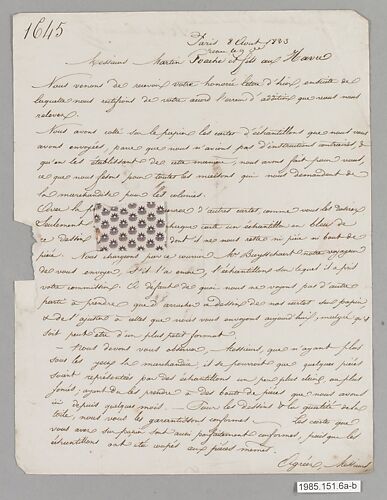 1645
Paris 8 Aout 1823
Messieurs Martin Foache et fils au Havre
Nous venons de recevoir votre honorée lettre d'hier, ensuite de
laquelle nous rectifions de votre accord l'erreur d'addition que vous nous
relevez.
Nous avons collé sur le papier les cartes d'échantillons que nous vous
avons envoyées, parce que nous n'avions pas d'instructions contraires, &
qu'en les établissant de cette manière, nous avons fait pour vous,
ce que nous fesons pour toutes les maisons qui nous demandent de
la marchandise pour les colonies.
d'autres cartes, comme vous les désirez
Seulement chaque carte un échantillon en bleu de
ce dessin dont il ne nous reste ni pièce ni bout de
pièce. Nous chargeons par ce courrier Mr
de vous envoyer, s'il l'a encore, l'échantillon sur lequel il a pris
votre commission. A défaut de quoi nous ne voyons pas d'autre
parti à prendre, que d'arracher ce dessin de nos cartes sur papier
& de l'ajouter à celles que nous vous envoyons aujourd'hui, malgré qu'il
soit peut être d'un plus petit format.
Nous devons vous observer, Messieurs, que n'ayant plus
sous les yeux la marchandise, il se pourrait que quelques pièces
soient représentées par des échantillons un peu plus clairs ou plus
foncés, ayant dû les prendre à des bouts de pièces que nous avons
ici depuis quelques mois. — Pour les dessins & la qualité de la
toile, nous vous les garantissons conformes — Les cartes que
vous avez sur papier sont aussi parfaitement conformes, puisque les
échantillons ont été coupés aux pièces mêmes.
Agréez, Messieurs
1985.151.6a-b